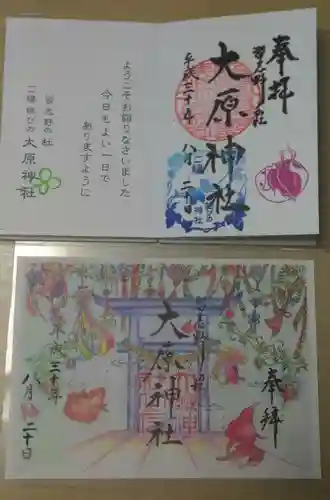 奉拝
習志野の社
大原神社
平成三十年
八月二十日
ようこそお詣りなさいました
今日もよい一日で
ありますように
習志野の社
二槽拝びの 大原神社
奉拝
大原神社
平成三十年
八月二十日